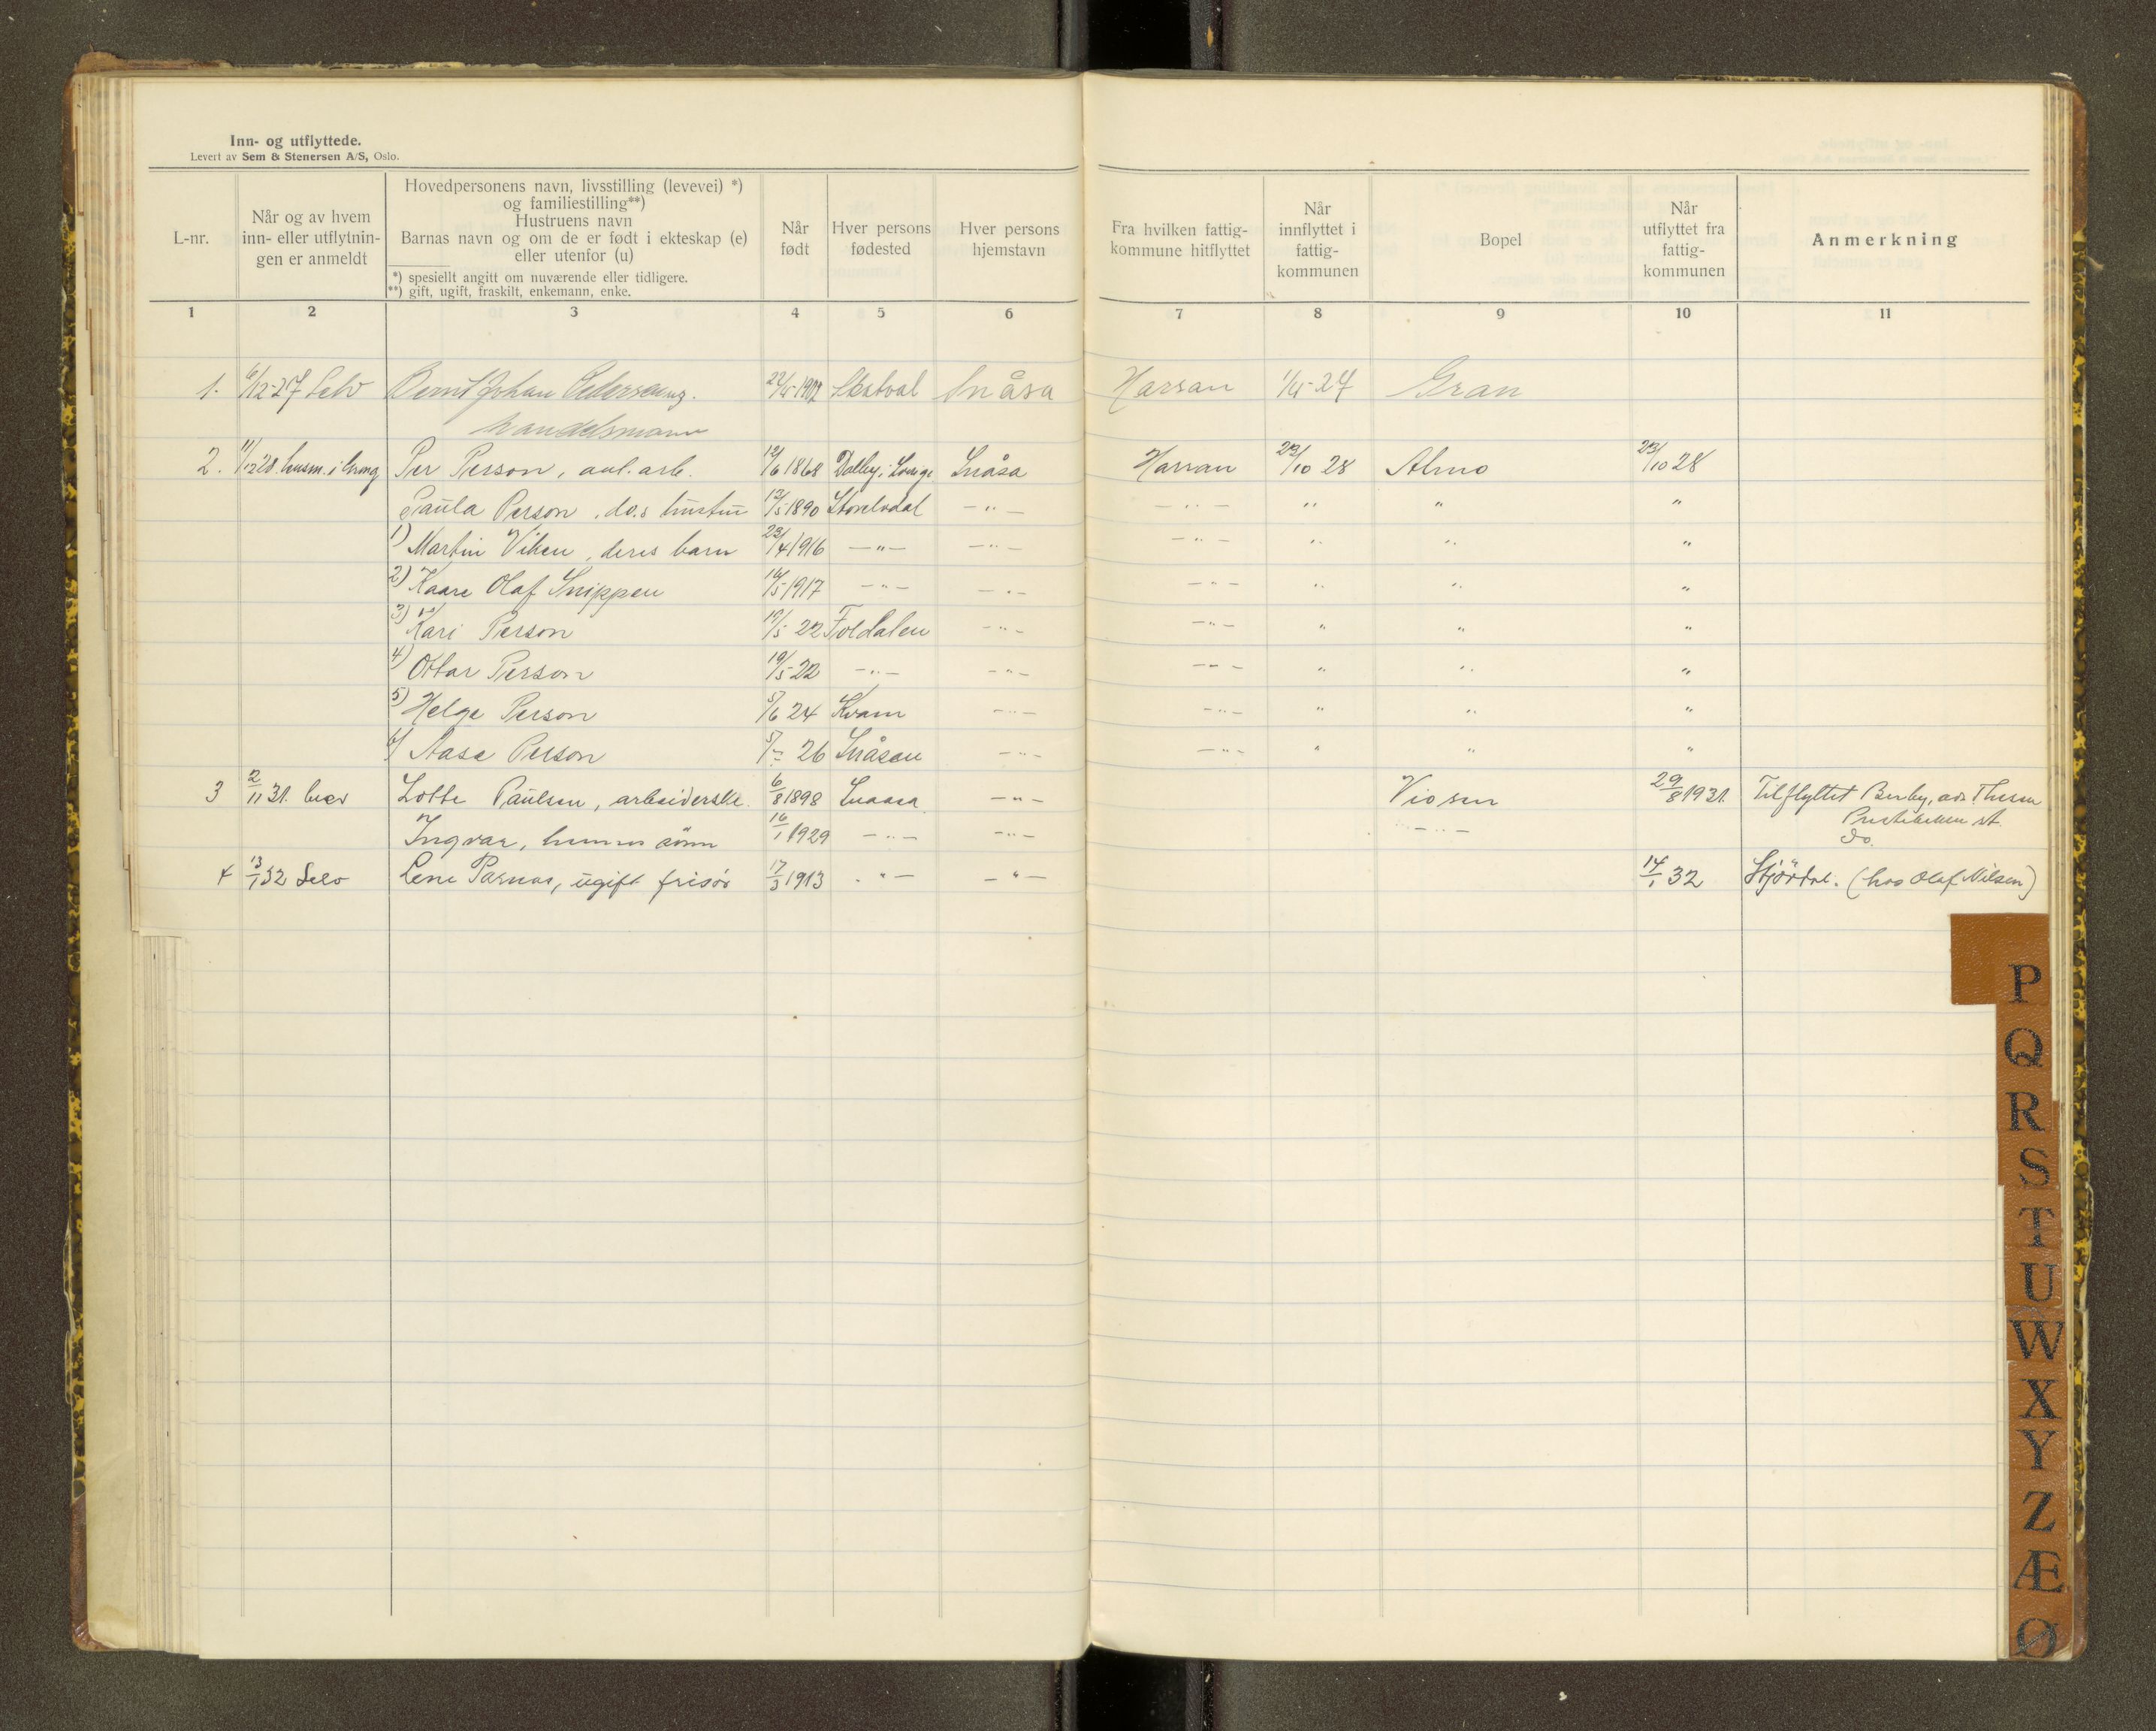 Inn- og utflyttede.
Levert av Sem & Stenersen A/S, Oslo.
L-nr.
Når og av hvem
inn- eller utflytnin-
gen er anmeldt
Hovedpersonens navn, livsstilling (levevei) *)
og familiestilling**)
Hustruens navn
Barnas navn og om de er født i ekteskap (e)
eller utenfor (u)
*) spesiellt angitt om nuværende eller tidligere.
**) gift, ugift, fraskilt, enkemann, enke.
Når
født
Hver persons
fødested
Hver persons
hjemstavn
Fra hvilken fattig-
kommune hitflyttet
Når
innflyttet i
fattig-
kommunen
Bopel
Når
utflyttet fra
fattig-
kommunen
Anmerkning
1 2 3 4 5 6 7 8 9 10 11
1. 6/12-27 Selv Bernt Johan Pedersen ug. Skatval Snåsa Harran 1/4-27 Gran
handelsmann
2. 11/12 28. husm. i Per Person, anl. arb. 12/6 1868 Dalby i Snåsa Harran 23/10 28 Almo 23/10 28
Paula Person, do.s hustru 13/5 1890 Storelvdal -"- -"- " " "
1) Martin Viken, deres barn 23/4 1916 -"- -"- -"- " " "
2) Kaare Olaf Snippen 16/5 1917 -"- -"- -"- " " "
3) Kari Person 19/5 22 Foldalen -"- -"- " " "
4) Ottar Person 19/5 22 -"- -"- -"- " " "
5) Helge Person 5/6 24 Kvam -"- -"- " " "
6) Aase Person 26 Snåsen -"- -"- " " "
3 2/11 31. brev Lotte Paulsen, arbeiderske. 6/8 1898 Snaasa -"- Viosen 29/8 1931. Tilflyttet
st.
Ingvar, hennes sönn 16/1 1929 -"- -"- -"- Do.
4 13/1 32 Selv Lene Parnas, ugift frisör 17/3 1913 -"- -"- 14/1 32 Stjördal. (hos Olaf Nilsen)
P
Q
R
S
T
U
W
X
Y
Z
Æ
Ø